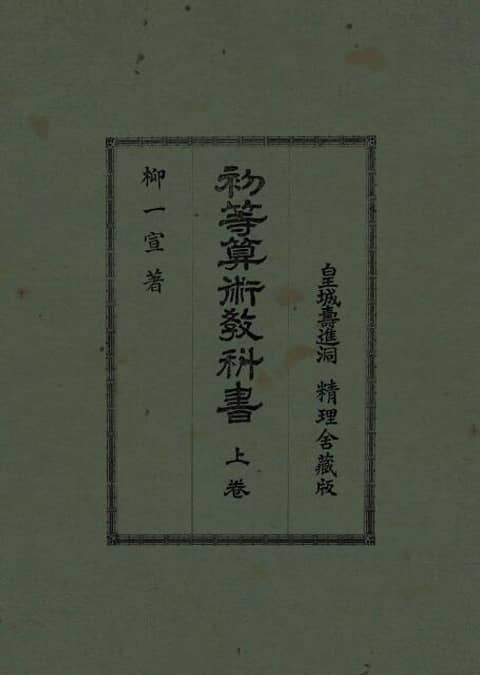 皇城壽進洞 精理舍藏版
初等算術敎科書 上卷
柳一宣著